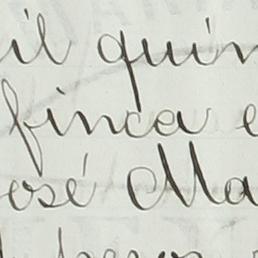 il quin
finca e
osé Ma